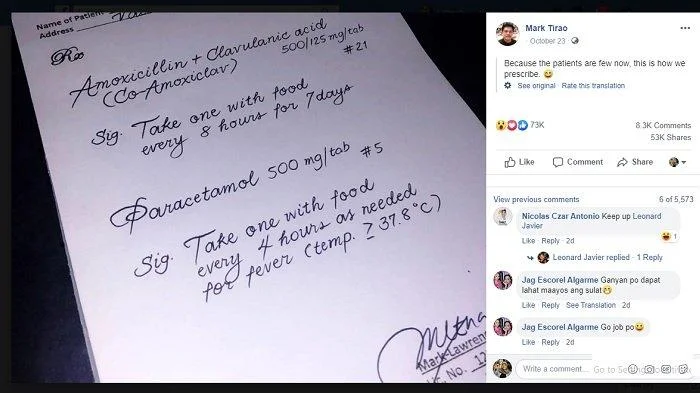 Name of Patient
Address
Rx
Amoxicillin + Clavulanic acid
(Co-Amoxiclav) 500/125 mg/tab
#21
Sig. Take one with food
every 8 hours for 7 days
Paracetamol 500 mg/tab #5
Sig. Take one with food
every 4 hours as needed
for fever (temp. ≥ 37.8°C)
Mark Lawren
No. 12
Mark Tirao
October 23 ·
Because the patients are few now, this is how we
prescribe. 😅
See original · Rate this translation
73K
8.3K Comments
53K Shares
Like Comment Share
View previous comments 6 of 5,573
Nicolas Czar Antonio Keep up Leonard
Javier
1
Like · Reply · 2d
Leonard Javier replied · 1 Reply
Jag Escorel Algarme Ganyan po dapat
lahat maayos ang sulat😁
Like · Reply · See Translation · 2d
Jag Escorel Algarme Go job po😀
Like · Reply · 2d
Write a comment...
Go to Se